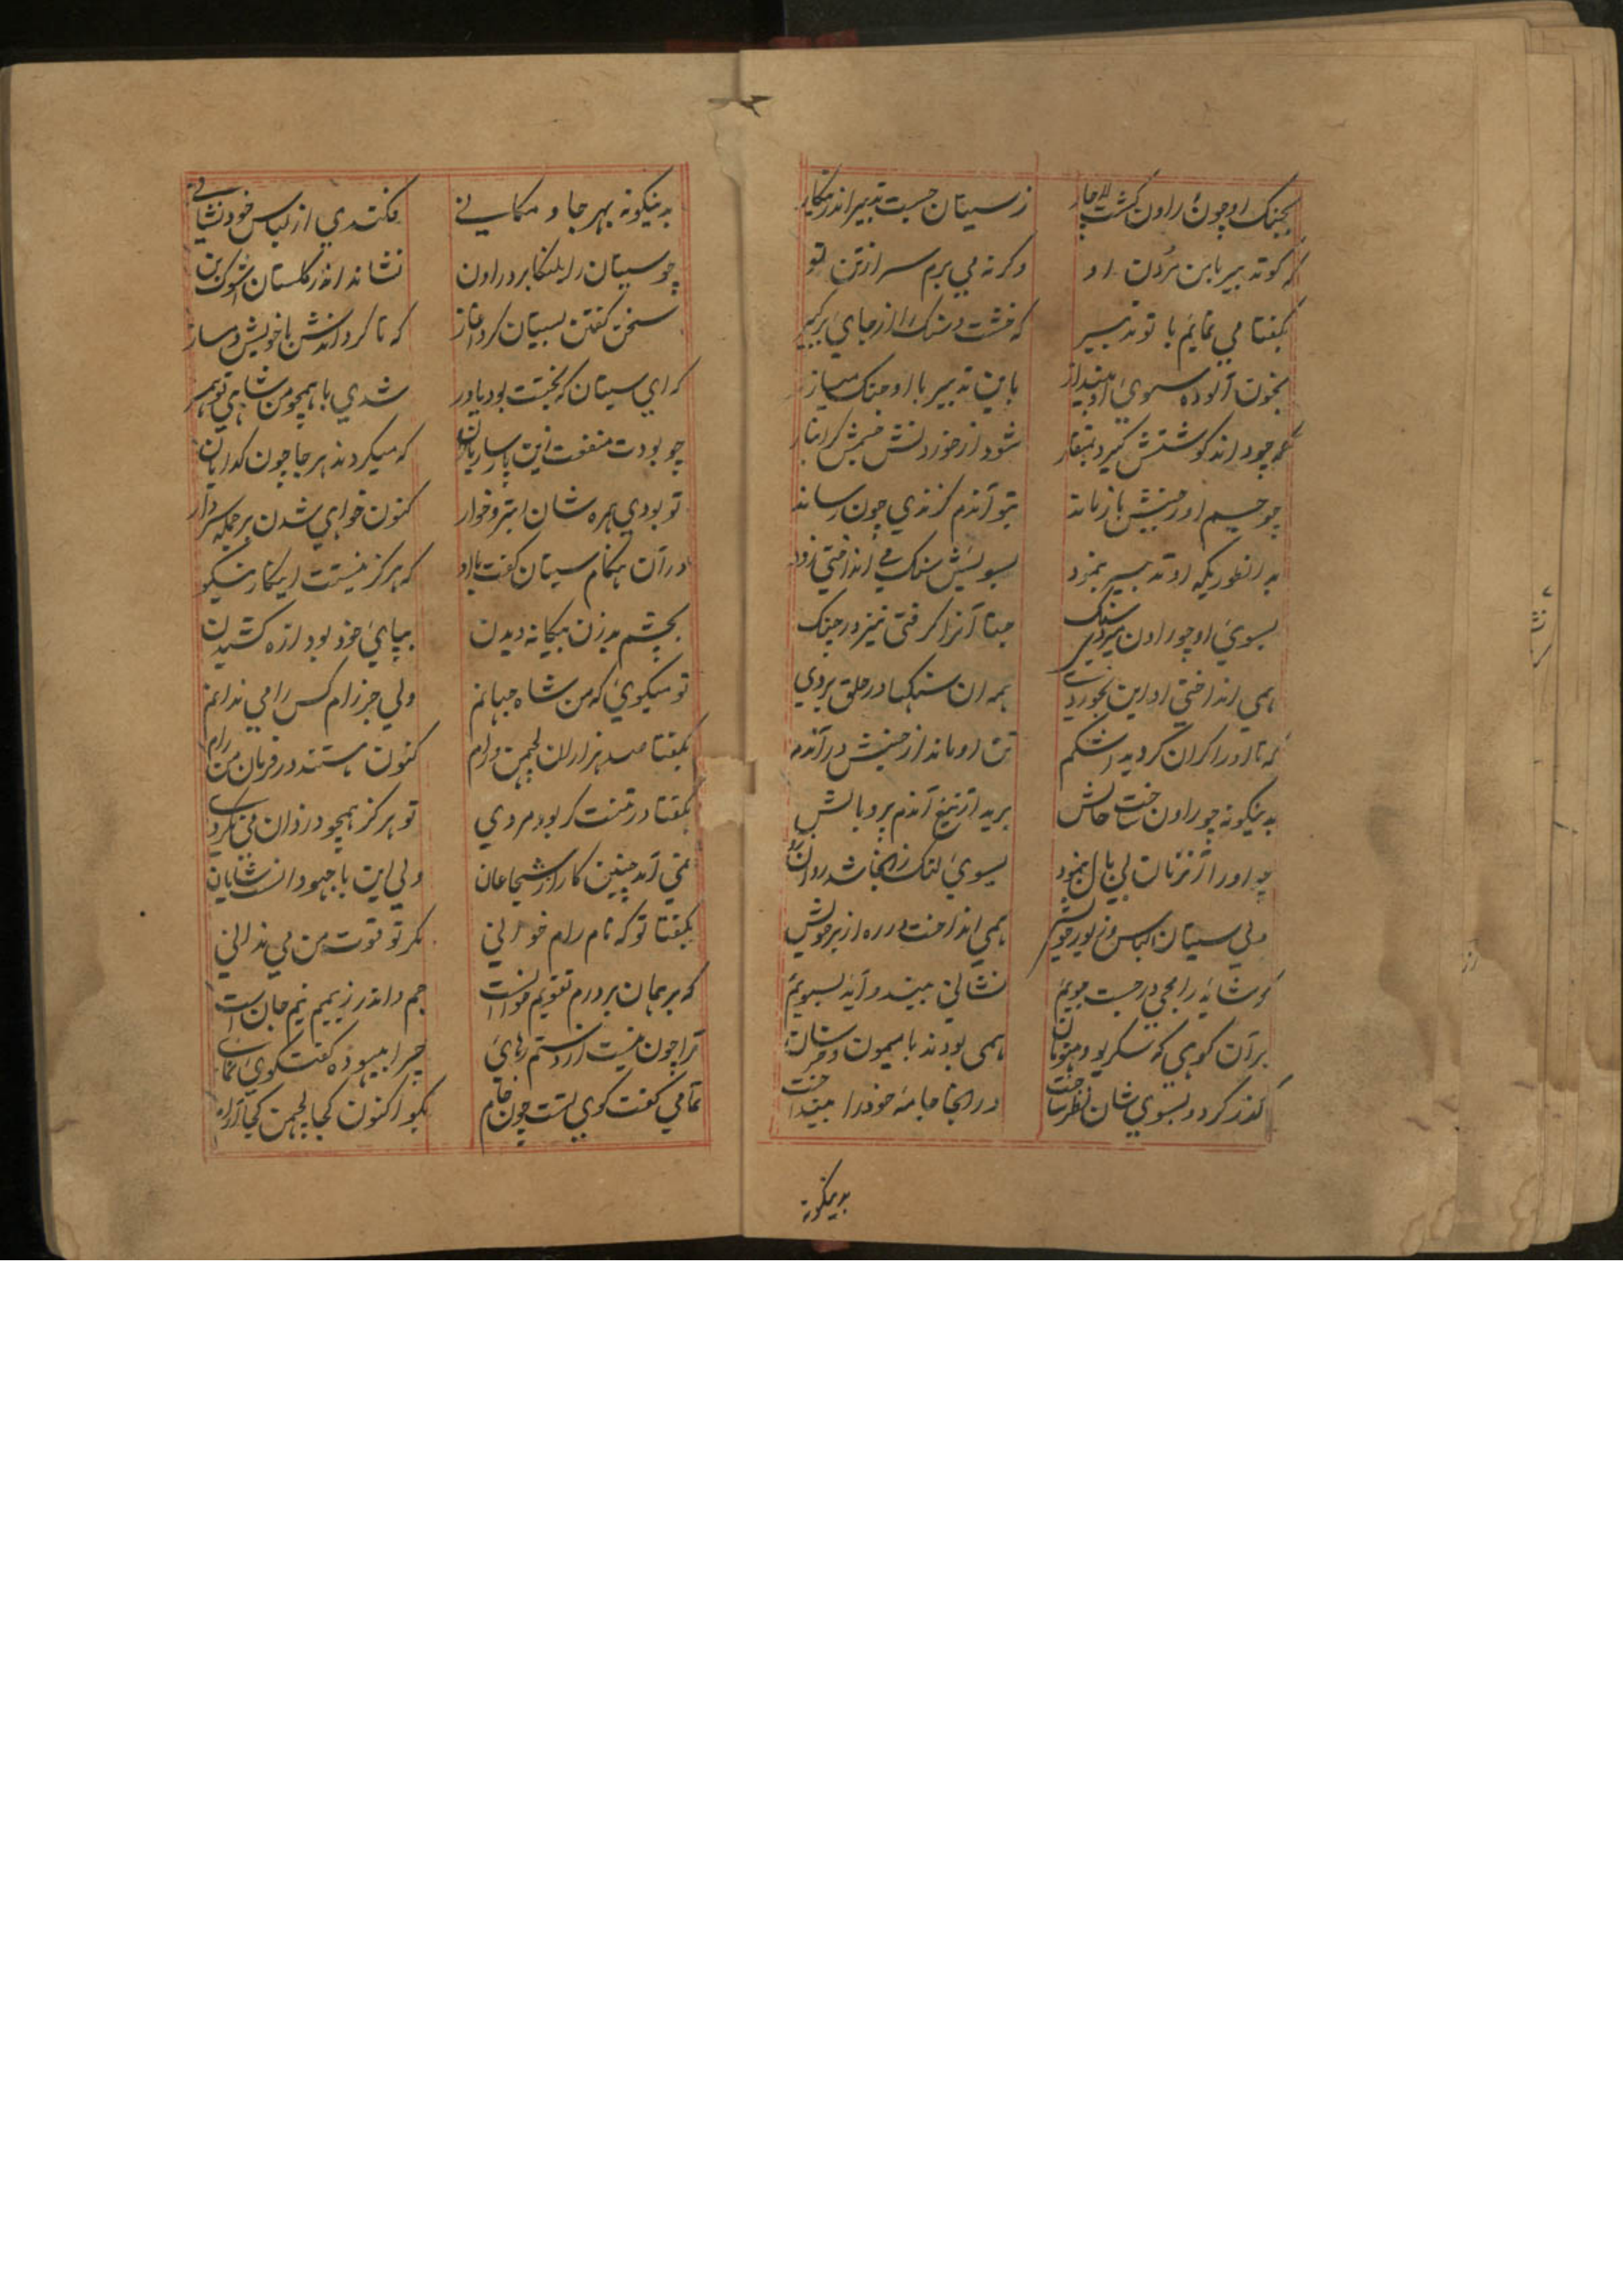 بجنک او چون راون کشت لاچار
ز سیتان جست تدبیر اندر پیکار
که کو تدبیر با من مردن او
وکرنه می برم سر از تن تو
بکفتا می نمایم با تو تدبیر
که خشت و سنک را از جای برکیر
بخون آلوده سوی او بینداز
باین تدبیر با او جنک میساز
چو جسم او ز جنبش باز ماند
بتو آندم کزندی چون رساند
بدانطوریکه او تدبیر بنمود
بسویش سنک می انداختی زود
بسوی او چو راون سنک
جتا آنرا کرفتی تیز در چنک
همی انداختی او این بخوردی
همه آن سنکها در حلق بردی
که تا او را کران کردید اشکم
تن او ماند از جنبش در آندم
بدینکونه چو راون ساخت حالش
برید از تیغ آندم پر و بالش
چو او را از تزنان بی بال بنمود
بسوی لنک زانجا شد روان زود
ولی سیتان لباس و زیور خویش
همی انداخت در ره از بر خویش
که شاید رامجی در جست جویم
نشانی بیند و آید بسویم
بر آن کوهی که سکریو و هنومان
همی بودند با میمون
کذر کرد و بسوی شان نظر ساخت
در آنجا جامهٔ خود را بینداخت
بدینکونه
بدینکونه بهر جا و مکانی
فکندی از لباس خود نشانی
چو سیتان را بلنکا برد راون
نشاند اندر کلستان اشوک بن
سخن کفتن بسیتان کرد آغاز
که تا کرداندش با خویش دمساز
که ای سیتان که بختت بود یاور
شدی با همچو من شاهی تو همسر
چو بودت منفعت زین پارسایان
که میکردند هر جا چون کدایان
تو بودی همره شان ابتر و خوار
کنون خواهی شدن بر جمله سردار
در آن هنکام سیتان کفت با او
که هرکز نیست اینکار نیکو
بچشم بد زن بیکانه دیدن
بپای خود بود اره کشیدن
تو میکوی که من شاه جهانم
ولی جز رام کس را می ندانم
بکفتا صد هزاران لچمن و رام
کنون هستند در فرمان من رام
بکفتا در تنت کر بود مردی
تو هرکز همچو دزدان می نکردی
نمی آید چنین کار از شجاعان
ولی این با جهودانست شایان
بکفتا تو که نام رام خوانی
مکر تو قوت من می ندانی
که برهمان بر درم تقویم خوانست
جم و اندر ز بیمم نیم جان است
ترا چون نیست از دستم رهای
چرا بیهوده کفت کوی نمای
تمامی کفت کوی تست چون خام
بکو اکنون کجا لچمن کجا رام